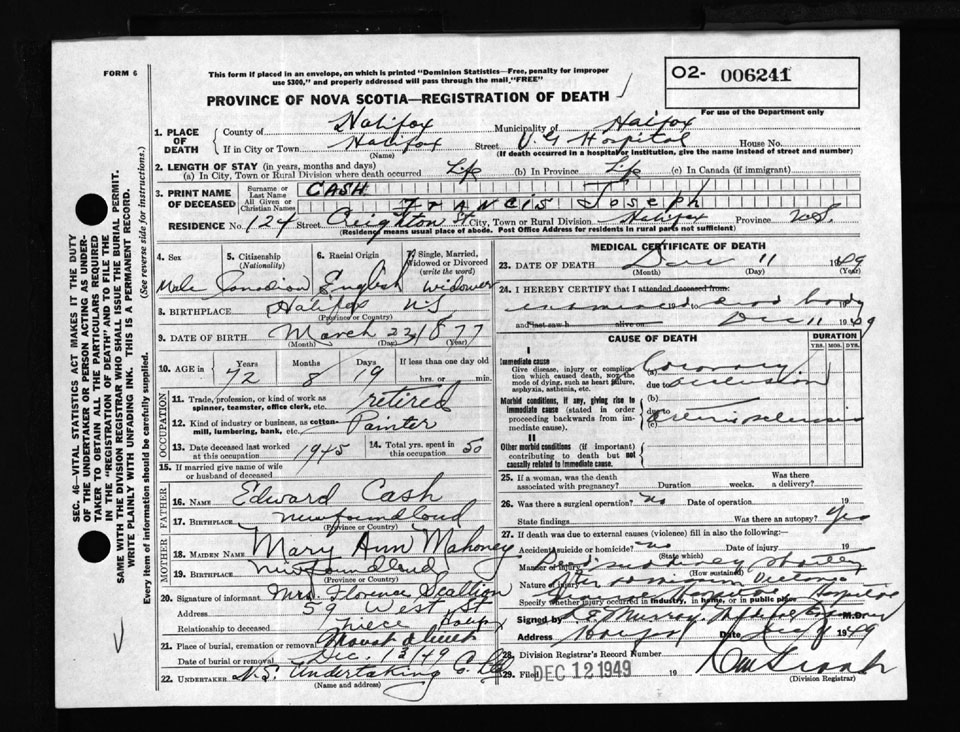 FORM 6
This form if placed in an envelope, on which is printed "Dominion Statistics—Free, penalty for improper
use $300," and properly addressed will pass through the mail "FREE"
PROVINCE OF NOVA SCOTIA—REGISTRATION OF DEATH
O2- 006241
For use of the Department only
1. PLACE OF DEATH
County of Halifax Municipality of Halifax
If in City or Town Halifax Street V. G Hospital House No.
(Name) (If death occurred in a hospital or institution, give the name instead of street and number)
2. LENGTH OF STAY (in years, months and days)
(a) In City, Town or Rural Division where death occurred Life (b) In Province Life (c) In Canada (if immigrant)
3. PRINT NAME OF DECEASED
Surname or Last Name CASH
All Given or Christian Names Francis Joseph
RESIDENCE No. 124 Street Creighton St City, Town or Rural Division Halifax Province N.S.
(Residence means usual place of abode. Post Office Address for residents in rural parts not sufficient)
4. Sex
Male
5. Citizenship
(Nationality)
Canadian
6. Racial Origin
English
7. Single, Married,
Widowed or Divorced
(write the word)
Widower
8. BIRTHPLACE Halifax NS
(Province or Country)
9. DATE OF BIRTH March 23 1877
(Month) (Day) (Year)
10. AGE in Years Months Days If less than one day old
72 8 19 hrs. or min.
OCCUPATION
11. Trade, profession, or kind of work as
spinner, teamster, office clerk, etc. retired
12. Kind of industry or business, as cotton-
mill, lumbering, bank, etc. Painter
13. Date deceased last worked
at this occupation 1945
14. Total yrs. spent in
this occupation 50
15. If married give name of wife
or husband of deceased
FATHER
16. NAME Edward Cash
17. BIRTHPLACE Newfoundland
(Province or Country)
MOTHER
18. MAIDEN NAME Mary Ann Mahoney
19. BIRTHPLACE Newfoundland
(Province or Country)
20. Signature of informant Mrs. Florence Scallion
Address 59 West St
Relationship to deceased Niece Halifax
21. Place of burial, cremation or removal Mount Olivet
Date of burial or removal Dec. 13 49
22. UNDERTAKER N.S. Undertaking Co. Ltd
(Name and address)
MEDICAL CERTIFICATE OF DEATH
23. DATE OF DEATH Dec 11 1949
(Month) (Day) (Year)
24. I HEREBY CERTIFY that I attended deceased from:
examined dead body
and last saw h alive on Dec 11 1949
CAUSE OF DEATH
DURATION
YRS. MOS. DYS.
I
Immediate cause
Give disease, injury or compli-
cation which caused death, not the
mode of dying, such as heart failure,
asphyxia, asthenia, etc.
(a) Coronary
due to occlusion
Morbid conditions, if any, giving rise to
immediate cause (stated in order
proceeding backwards from im-
mediate cause).
(b)
due to
(c) arteriosclerosis
II
Other morbid conditions (if important)
contributing to death but not
causally related to immediate cause.
25. If a woman, was the death
associated with pregnancy? Duration weeks. Was there
a delivery?
26. Was there a surgical operation? no Date of operation 19
State findings Was there an autopsy? Yes
27. If death was due to external causes (violence) fill in also the following:
Accident, suicide or homicide? no Date of injury 19
(State which)
Manner of injury
(How sustained)
Nature of injury
Specify whether injury occurred in industry, in home, or in public place
Signed by M.D.
Address Halifax Date 1949
28. Division Registrar's Record Number
29. Filed DEC 12 1949 19
(Division Registrar)
SEC. 46—VITAL STATISTICS ACT MAKES IT THE DUTY
OF THE UNDERTAKER OR PERSON ACTING AS UNDER-
TAKER TO OBTAIN ALL THE PARTICULARS REQUIRED
IN THE "REGISTRATION OF DEATH" AND TO FILE THE
SAME WITH THE DIVISION REGISTRAR WHO SHALL ISSUE THE BURIAL PERMIT.
WRITE PLAINLY WITH UNFADING INK. THIS IS A PERMANENT RECORD.
Every item of information should be carefully supplied. (See reverse side for instructions.)